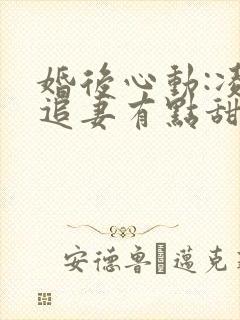 婚後心動:凌
追妻有點甜
安德魯·邁克